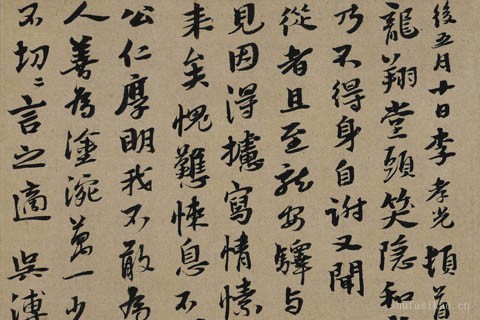 後五月十日李孝光頓首
龍翔堂頭笑隱和
乃不得身自謝又聞
從者且至安驛與
見因得攄寫情愫
来矣愧戁悚息不
公仁厚明我不敢為
人善為塗涴萬一少
不切〻言之適吳溥